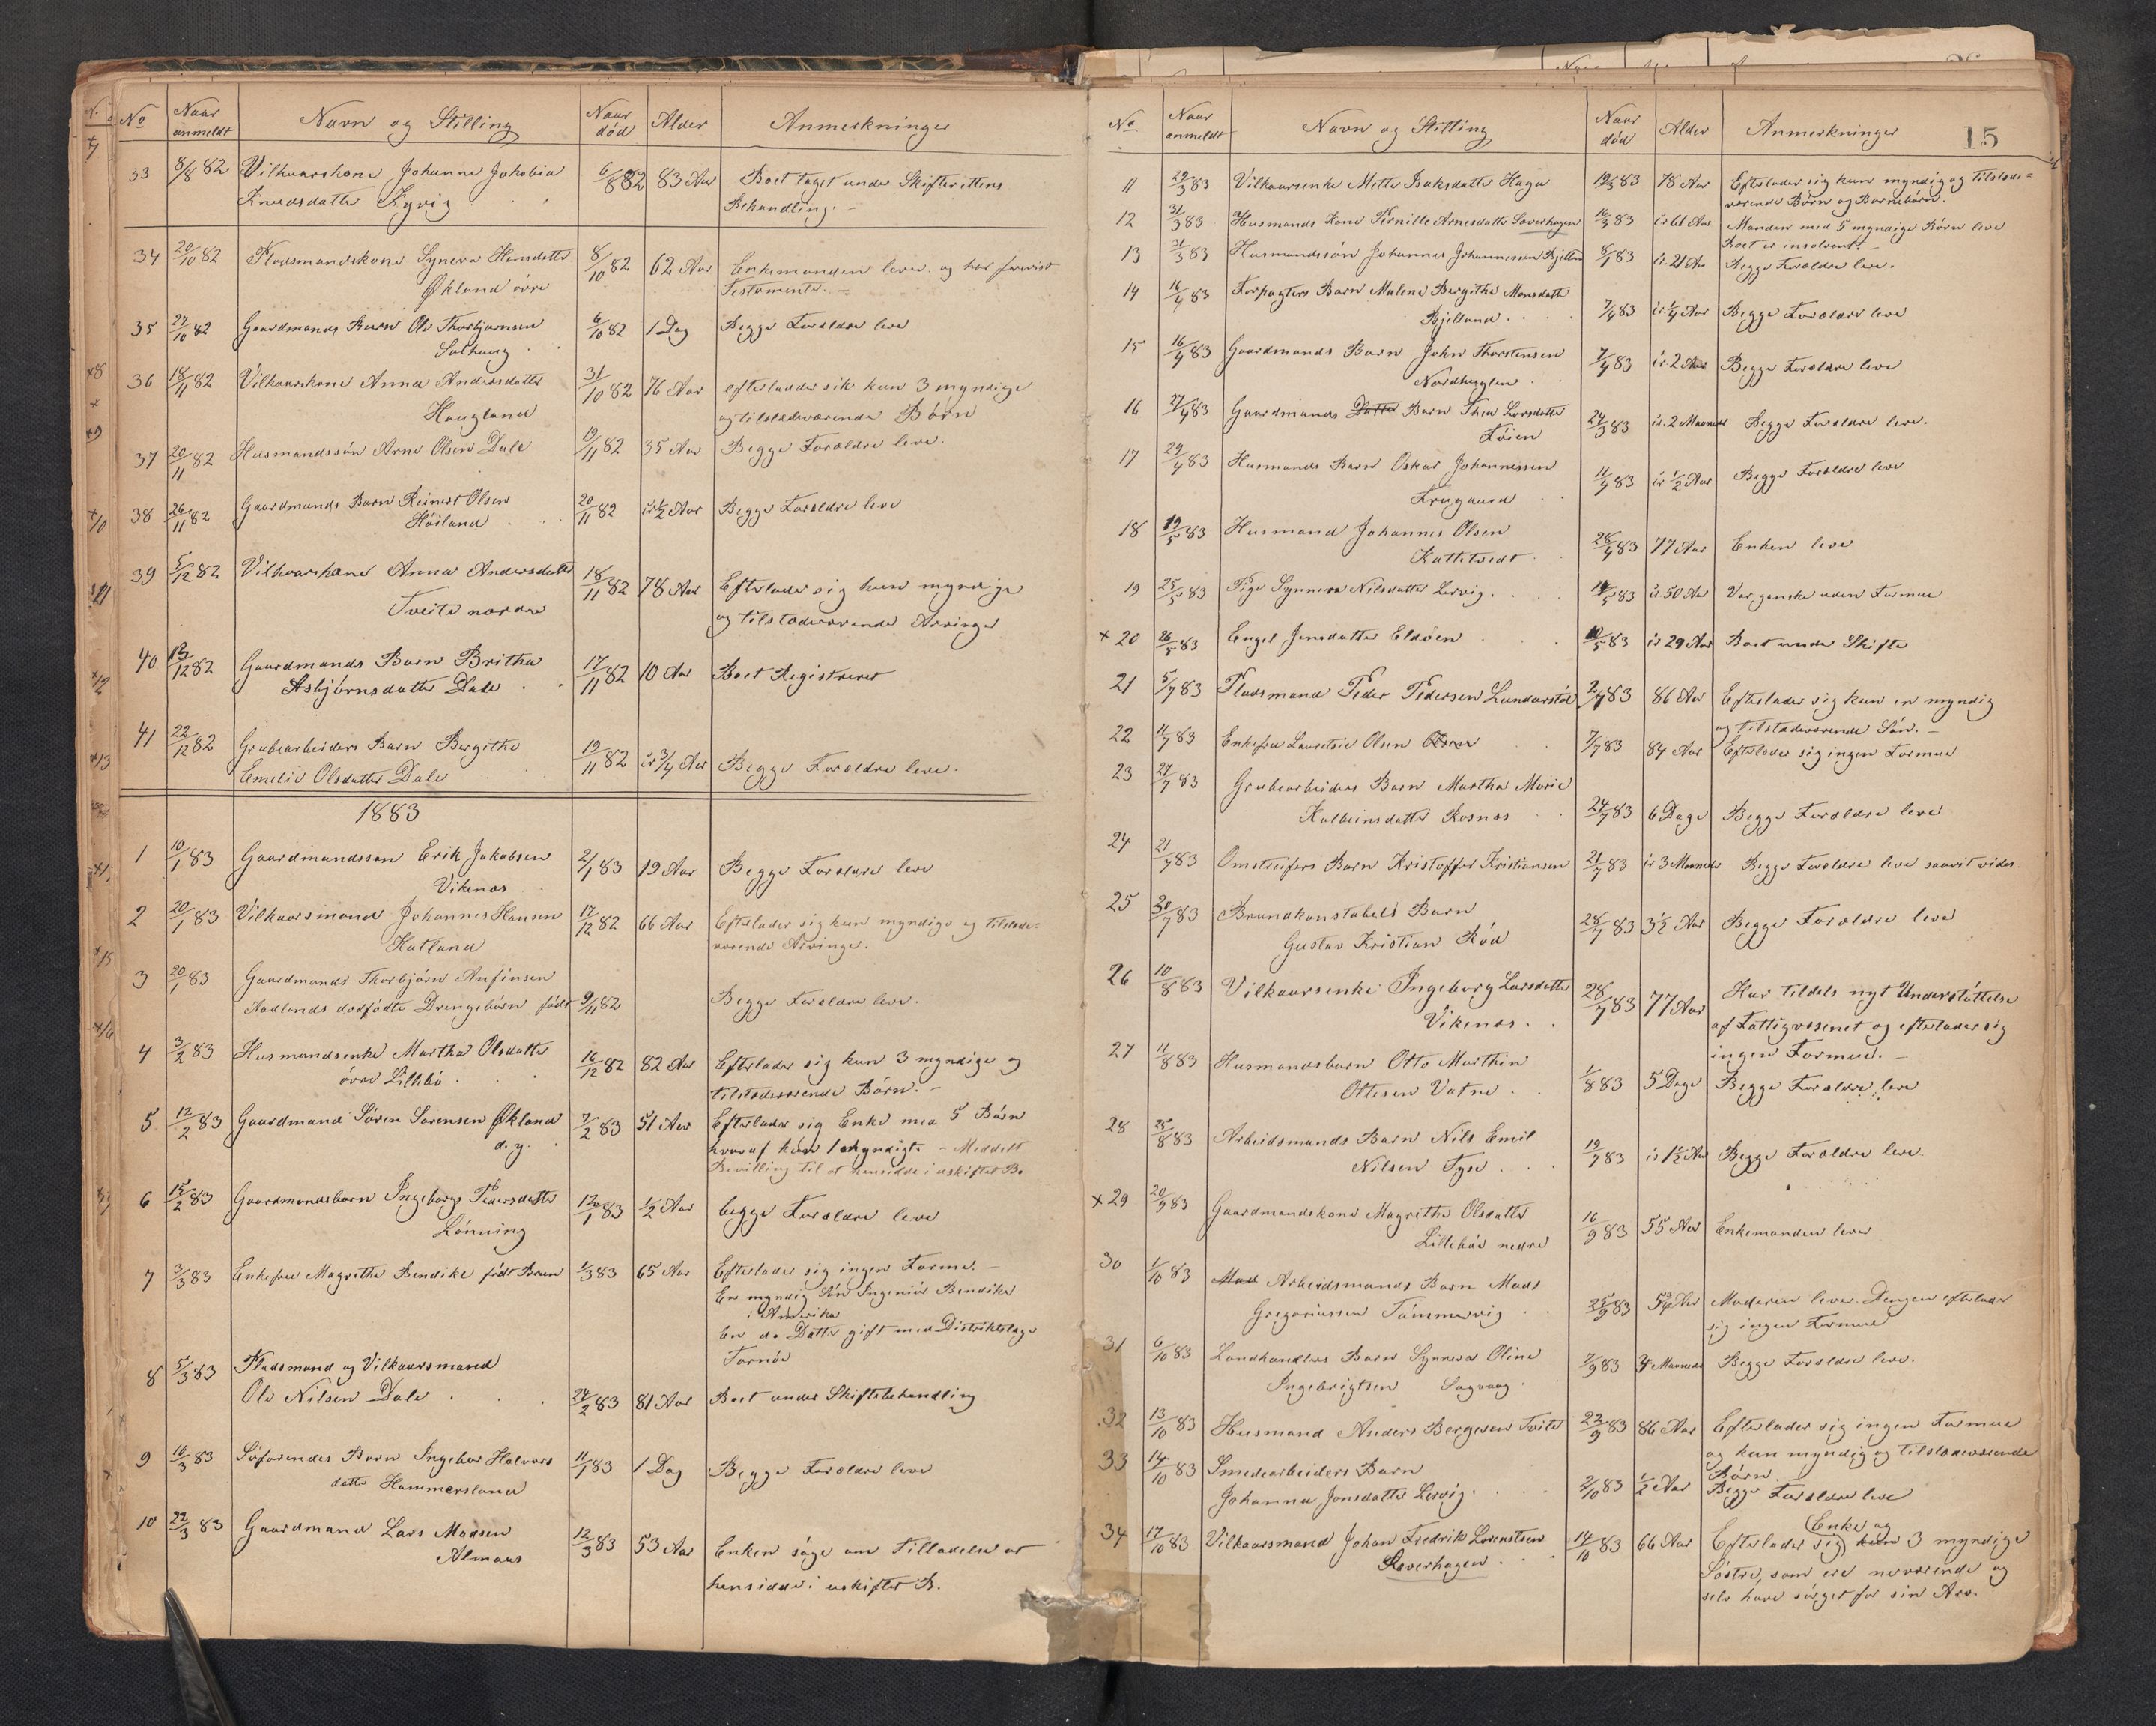 No Naar anmeldt Navn og Stilling Naar død Alder Anmerkninger
33 8/8 82 Vilkaarskone Johanne Jakobia 6/8 82 83 Aar Boet taget under Skifterettens
Knudsdatter Behandling. -
34 20/10 82 Pladsmandskone Synneva Hansdatter 8/10 82 62 Aar Enkemanden lever og har forevist
Økland øvre Testamente. -
35 27/10 82 Gaardmands Barn Ole Thorbjørnsen 6/10 82 1 Dag Begge Forældre leve
36 18/11 82 Vilkaarskone Anna Andersdatter 31/10 82 76 Aar efterlader sik kun 3 myndige
Haugland og tilstedeværende Børn
37 20/11 82 Husmandssøn Arne Olsen Dale 19/11 82 35 Aar Begge Forældre leve.
38 26/11 82 Gaardmands Barn Reinert Olsen 20/11 82 ir 1/2 Aar Begge Forældre leve
Høiland
39 5/12 82 Vilkaarskone Anna Andersdatter 18/11 82 78 Aar Efterlader sig kun myndige
Tveita nordre og tilstedeværende Arvinger
40 13/12 82 Gaardmands Barn Britha 17/11 82 10 Aar Boet Registreret
Asbjørnsdatter Dale
41 22/12 82 Grubearbeiders Barn Bergithe
Emelie Olsdatter Dale 19/11 82 ir 3/4 Aar Begge Forældre leve.
1883
1 10/1 83 Gaardmandssøn Erik Jakobsen 2/1 83 19 Aar Begge Forældre leve
Vikenes
2 20/1 83 Vilkaarsmand Johannes Hansen 17/12 82 66 Aar Efterlader sig kun myndige og tilstede=
Hatland værende Arvinge.
3 20/1 83 Gaardmands Thorbjørn Anfinsen
Aadlands dødfødte Drengebørn født 9/11 82 Begge Forældre leve.
4 3/2 83 Husmandsenke Martha Olsdatter 16/12 82 82 Aar Efterlader sig kun 3 myndige og
øvre Lillebø . tilstedeværende Børn. -
5 12/2 83 Gaardmand Søren Sørensen Økland 7/2 83 51 Aar Efterlader sig Enke med 5 Børn
d. y. hvoraf kun 1 - Meddelt
Bevilling til at hensidde i uskiftet Bo
6 15/2 83 Gaardmandsbarn Ingeborg Pedersdatter 12/1 83 1/2 Aar begge Forældre leve
Lønning
7 3/3 83 Enkefru Magrethe Bendike født Brun 1/3 83 65 Aar Efterlader sig ingen Formu. -
En myndig Søn Ingeniør Bendike
i Amerika
En do Datter gift med Distriktslæge
8 5/3 83 Pladsmand og Vilkaarsmand
Ole Nilsen Dale . 24/2 83 81 Aar Boet under Skiftebehandling
9 16/3 83 Søfarendes Barn Ingebor Halvors 11/1 83 1 Dag Begge Forældre leve
datter Hammersland
10 22/3 83 Gaardmand Lars Madsen 12/3 83 53 Aar Enken søge om Tilladelse at
Almaas hensidde i uskiftet B.
15
No Naar anmeldt Navn og Stilling Naar død Alder Anmerkninger
11 29/3 83 Vilkaarsenke Mette Isaksdatter Haga 19/3 83 78 Aar Efterlader sig kun myndig og tilstede=
værende Børn og Børnebørn.
12 31/3 83 Husmands Kone Pernille Arnesdatter Soverhagen 16/3 83 ir 61 Aar Manden med 5 myndige Børn leve
Boet er insolvent. -
13 31/3 83 Husmandssøn Johannes Johannessen Bjelland 8/1 83 ir. 21 Aar Begge Forældre leve.
14 16/4 83 Forpagters Barn Malene Bergithe Monsdatter
Bjelland . . . 7/4 83 ir 1/4 Aar Begge Forældre leve
15 16/4 83 Gaardmands Barn John Thorstensen
Nordhuglen . 7/4 83 ir. 2 Aar Begge Forældre leve
16 27/4 83 Gaardmands Datter Barn Thea Larsdatter
Føien 24/3 83 ir. 2 Maaneder Begge Forældre leve.
17 29/4 83 Husmands Barn Oskar Johannessen
11/4 83 ir 1/2 Aar Begge Forældre leve
18 19/5 83 Husmand Johannes Olsen
Kattetvedt . 28/4 83 77 Aar Enken leve
19 25/5 83 Pige Synneva Nilsdatter Lervig . . . 14/5 83 ir. 50 Aar Var ganske uden Formue
x 20 26/5 83 Engel Jensdatter Eldøen 10/5 83 ir 29 Aar Boet under Skifte
21 5/7 83 Pladsmand Peder Pedersen Lundarstøl 2/7 83 86 Aar Efterlader sig kun en myndig
og tilstedeværende Søn. -
22 11/7 83 Enkefru Lauretsie Olsen 7/7 83 84 Aar Efterlader sig ingen Formue
23 27/7 83 Grubearbeiders Barn Martha Marie
Kolbeinsdatter Rosnes . . 24/7 83 6 Dage Begge Forældre leve
24 21/7 83 Omstreifers Barn Kristoffer Kristiansen 21/7 83 ir 3 Maaneder Begge Forældre leve saavit vides.
25 30/7 83 Brandkonstabels Barn
Gustav Kristian Rød 28/7 83 3 1/2 Aar Begge Forældre leve
26 10/8 83 Vilkaarsenke Ingeborg Larsdatter 28/7 83 77 Aar Har tildels nyt Understøttelse
Vikenes. . af Fattigvæsenet og efterlader sig
ingen Formue. -
27 11/8 83 Husmandsbarn Otto Marthin
Ottesen Vatne . . 1/8 83 5 Dage Begge Forældre leve
28 25/8 83 Arbeidsmands Barn Nils Emil
Nilsen Tyse . . . 19/7 83 ir 1 1/2 Aar Begge Forældre leve
x 29 20/9 83 Gaardmandskone Magrethe Olsdatter
Lillebøe nedre 16/9 83 55 Aar Enkemanden leve
30 1/10 83 Mad Arbeidsmands Barn Mads
Gregoriussen Tømmervig . 25/9 83 Aar Moderen leve. Drengen efterlader
sig ingen Formue
31 6/10 83 Landhandlers Barn Synneva Oline 7/9 83 Maaneder Begge Forældre leve.
Ingebrigtsen Sagvaag .
32 13/10 83 Husmand Anders Bergesen Tveite 22/9 83 86 Aar Efterlader sig ingen Formue
og kun myndig og tilstedeværende
Børn.
33 14/10 83 Smedearbeiders Barn
Johanna Jonsdatter Lervig . . . 2/10 83 1/2 Aar Begge Forældre leve
34 17/10 83 Vilkaarsmand Johan Fredrik Lorentsen 14/10 83 66 Aar Efterlader sig (Enke og) kun 3 myndige
Soverhagen . . . Søstre, som ere nærværende og
selv have sørget for sin Arv.